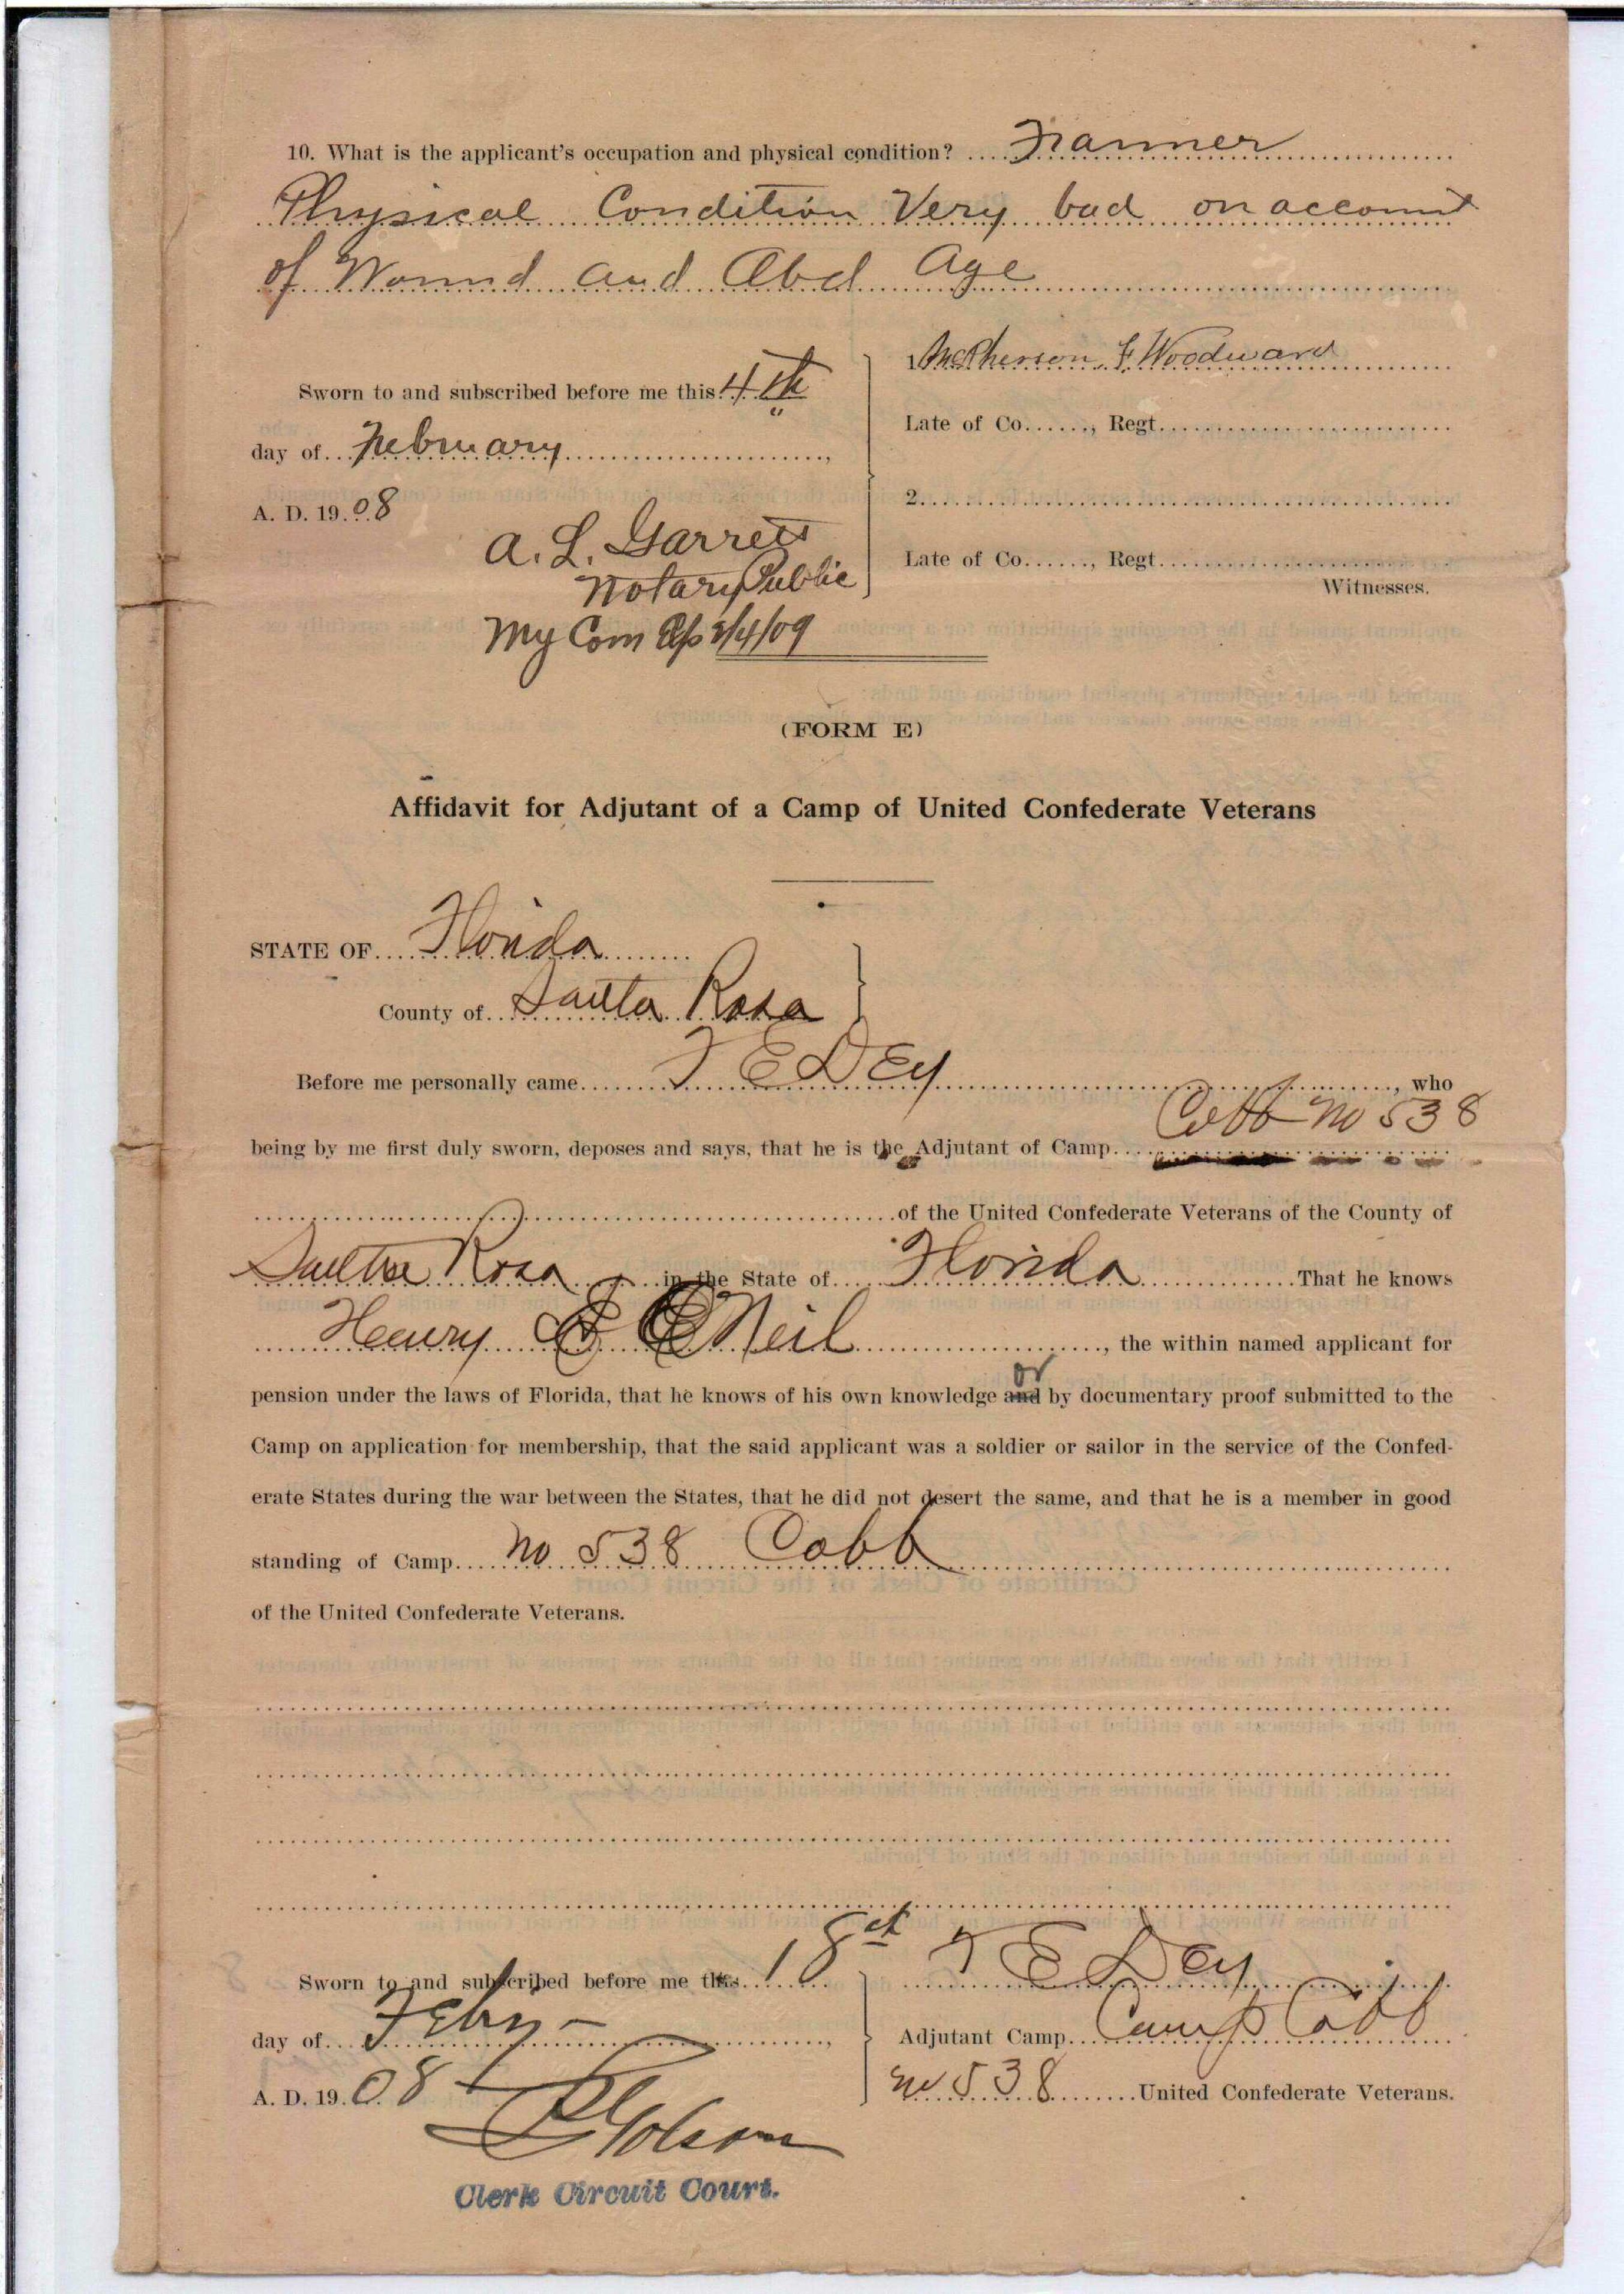 10. What is the applicant's occupation and physical condition? Farmer
Physical Condition Very bad on account
of Wound and Abd Age
1. McPherson F Woodward
Sworn to and subscribed before me this 4th
Late of Co......, Regt.
day of February,
A. D. 19.08
2.
A. L. Garrett
Late of Co......, Regt.
Notary Public
Witnesses.
My Com Exp 2/4/09
(FORM E)
Affidavit for Adjutant of a Camp of United Confederate Veterans
STATE OF Florida
County of Santa Rosa
Before me personally came T E Dey, who
being by me first duly sworn, deposes and says, that he is the Adjutant of Camp Cobb no 538
of the United Confederate Veterans of the County of
Santa Rosa in the State of Florida That he knows
Henry O'Neil, the within named applicant for
pension under the laws of Florida, that he knows of his own knowledge and or by documentary proof submitted to the
Camp on application for membership, that the said applicant was a soldier or sailor in the service of the Confed-
erate States during the war between the States, that he did not desert the same, and that he is a member in good
standing of Camp no 538 Cobb
of the United Confederate Veterans.
Sworn to and subscribed before me this 18th
T E Dey
day of Feby,
Adjutant Camp Camp Cobb
A. D. 19.08
no 538 United Confederate Veterans.
Golson
Clerk Circuit Court.